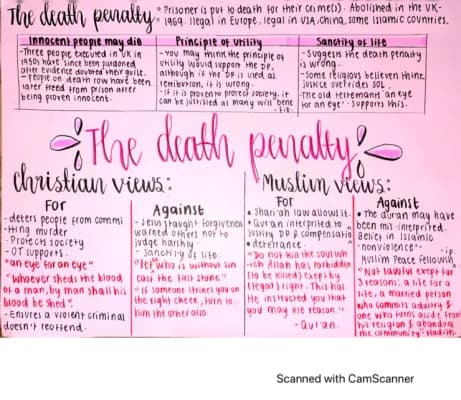 The death penalty
• Prisoner is put to death for their crime(s). Abolished in the UK-
1969. Illegal in Europe, legal in USA, China, some Islamic countries.
Innocent people may die
-Three people executed in UK in
1950s have since been pardoned
after evidence doubted their guilt.
-People on death row have been
later freed from prison after
being proven innocent.
Principle of Utility
-You may think the principle of
utility would support the DP,
although if the DP is used as
retribution, it is wrong.
-If it is proven to protect society, it
can be justified as many will bene
-fit.
Sanctity of life
-Suggests the death penalty
is wrong.
-Some religious believers think
justice overrides SOL.
-The old testement 'an eye
for an eye' - supports this.
The death penalty
Christian views:
For
-deters people from commi
-tting murder
-Protects society
-OT supports.
"an eye for an eye"
"Whoever sheds the blood
of a man, by man shall his
blood be shed".
-Ensures a violent criminal
doesn't reoffend.
Against
-Jesus taught forgiveness
warned others not to
judge harshly.
-Sanctity of life.
who is without sin
cast the first stone."
"If someone strikes you on
the right cheek, turn to
him the other also.
Muslim views:
For
• Shari'ah law allows it.
• Qur'an interpreted to
justify DP & compensation
• deterrance.
"Do not kill the soul wh
-ich Allah has forbidden
(to be killed) except by
(legal) right. This has
He instructed you that
you may use reason."
-Qur'an.
Against
• The Quran may have
been mis-interprited.
Belief in Islamic
'nonviolence'-
Muslim Peace Fellowship
"Not lawful except for
3 reasons: a life for a
life, a married person
who commits adultry &
one who turns aside from
his religion & abandons
the community"-Hadith.
Scanned with CamScanner